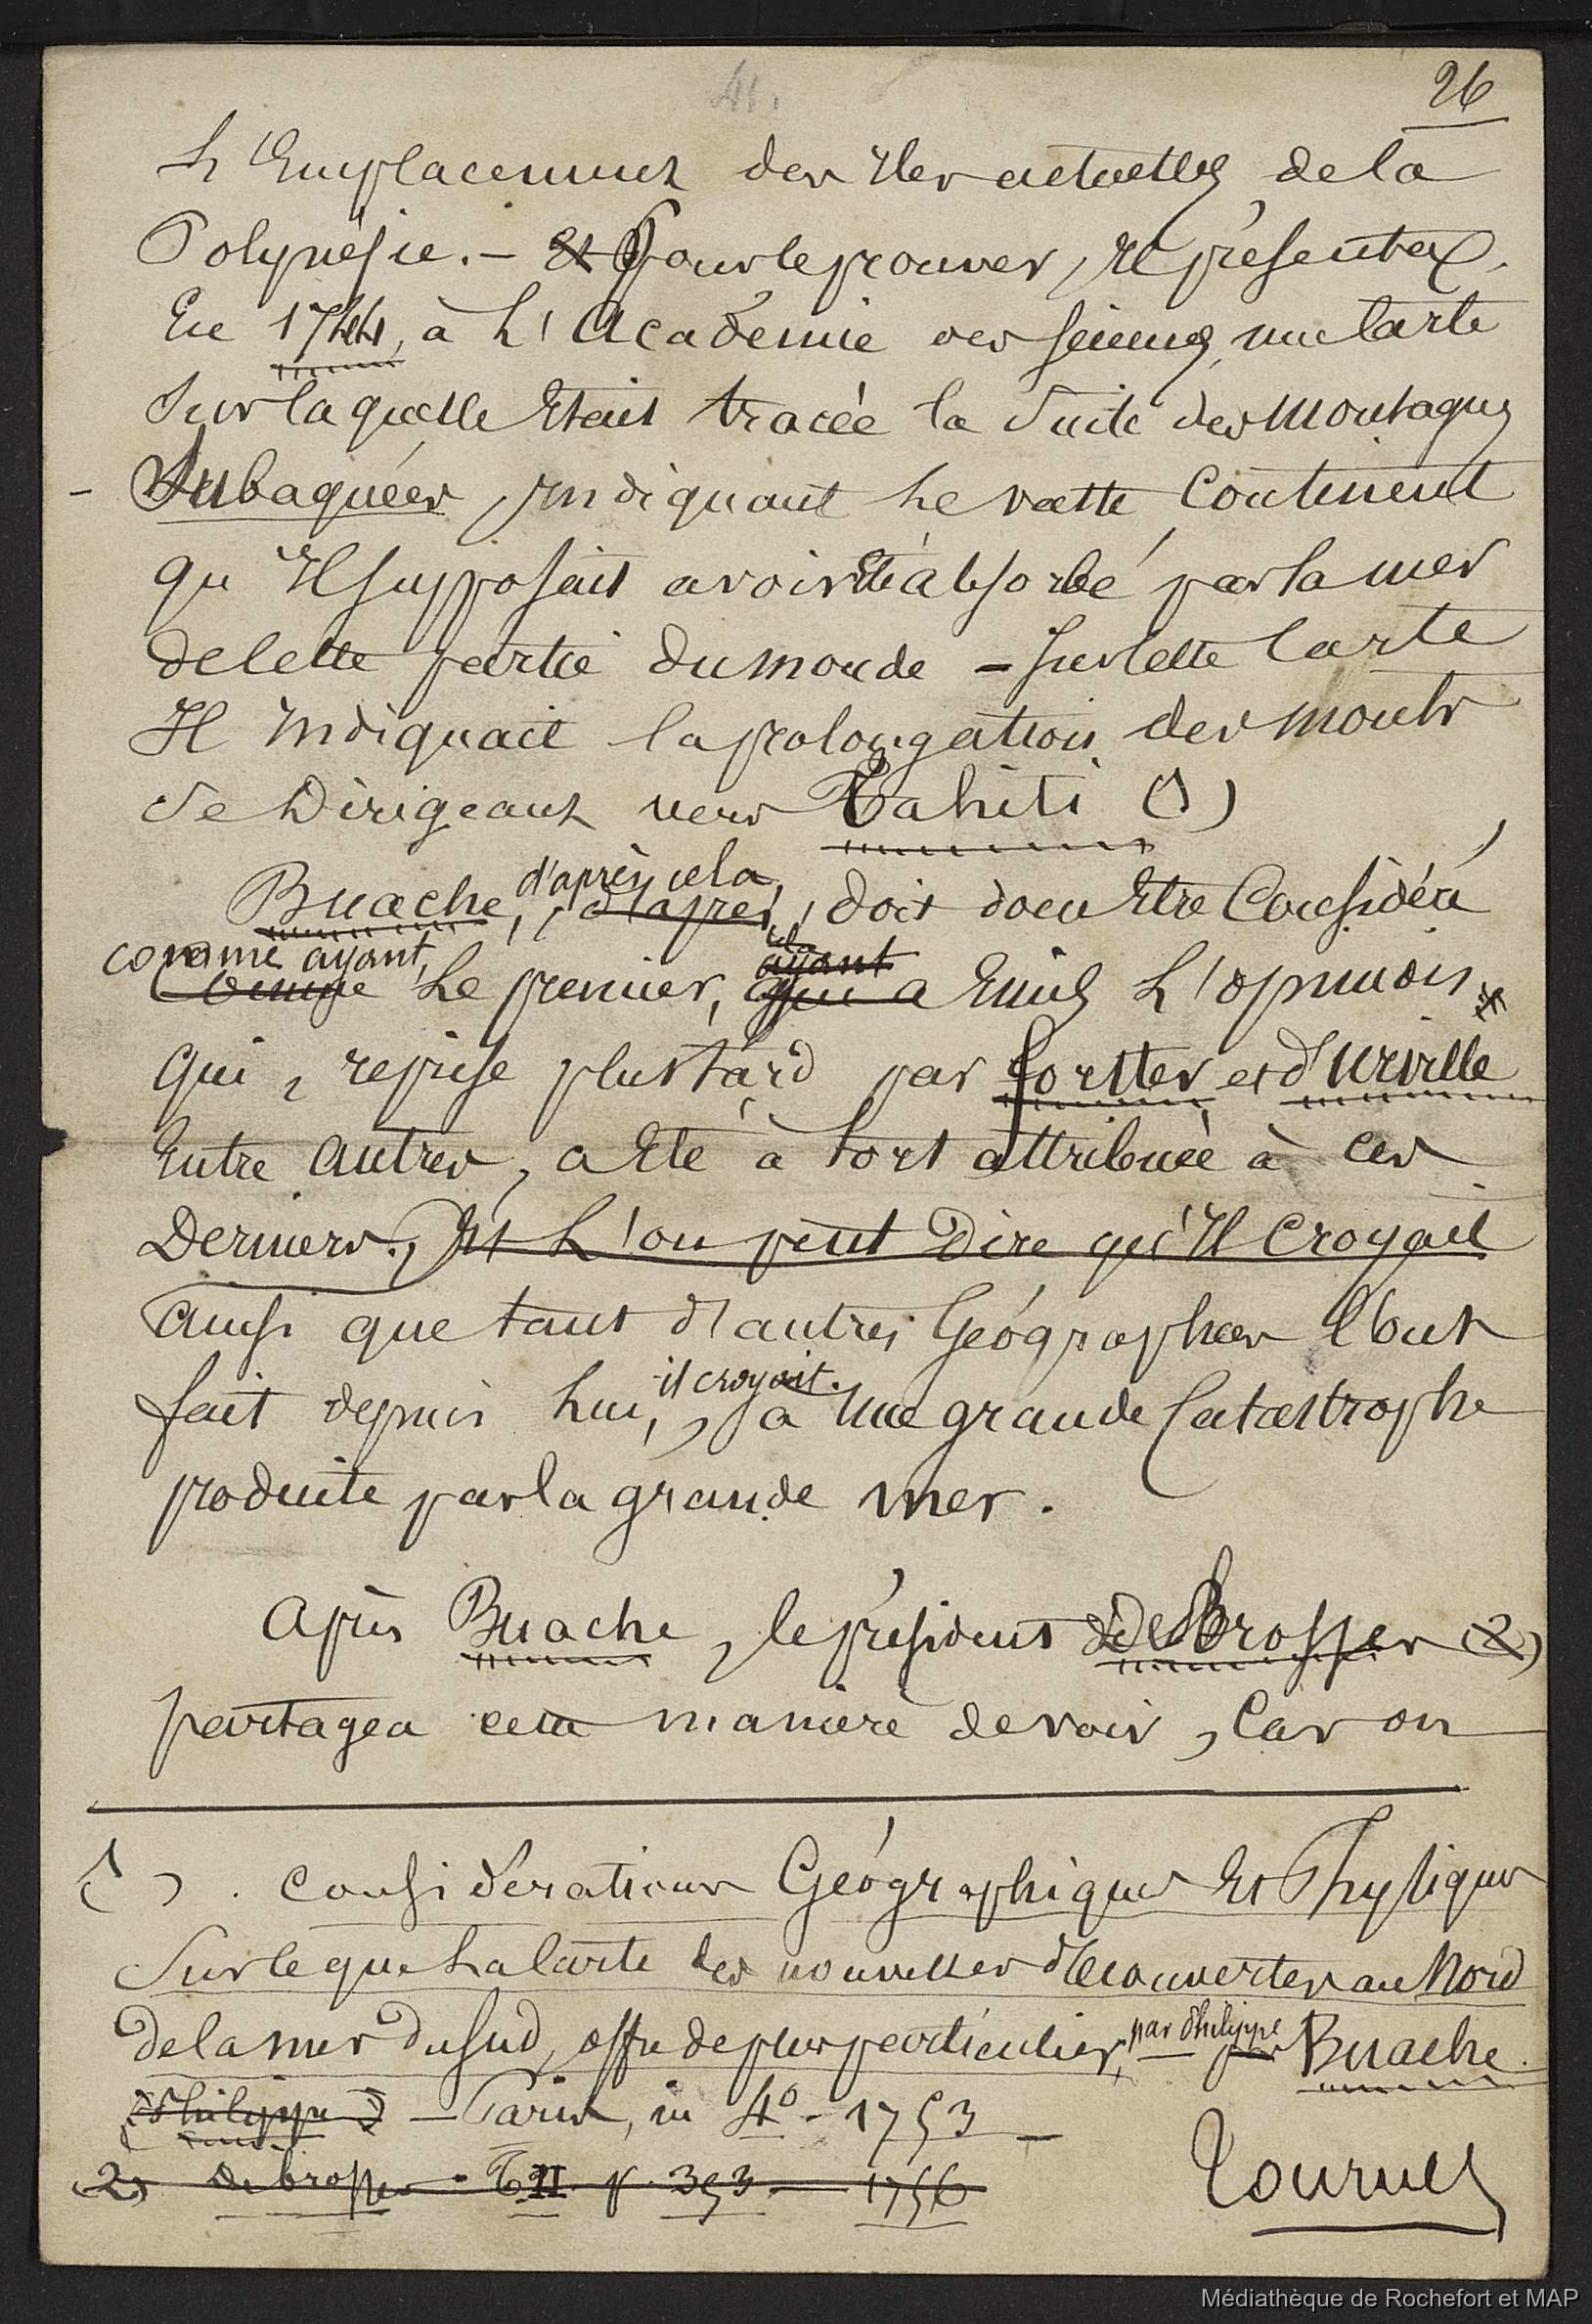 41.
26
L'Emplacement des Iles actuelles de la
Polynésie. - Et Pour le prouver, Il présenta,
En 1744, à L'Académie des Sciences, une Carte
Sur laquelle Etait tracée la Suite des Montagnes
- Subaquées, Indiquant Le vaste Continent
qu'Il supposait avoir Eté absorbé par la mer
de Cette partie du monde - Sur Cette Carte
Il Indiquait la prolongation des Monts
Se Dirigeant vers Tahiti (1)
d'après cela,
Buache, d'après, doit donc Etre Considéré
comme ayant,
ayant
Comme Le premier, qui a Emis L'opinion
qui, reprise plus tard par Forster et d'Urville
Entre Autres, a Eté à tort attribuée à Ces
Derniers., Et L'on peut Dire qu'Il Croyait
Ainsi que tant d'autres Géographes l'ont
il croyait.
fait depuis Lui, à Une grande Catastrophe
produite par la grande mer.
Après Buache, le président de Brosses (2)
partagea cette manière de voir, Car on
(1). Considérations Géographiques Et Physiques
Sur le que La Carte des nouvelles découvertes au Nord
par Philippe
de la mer du Sud, offre de plus particulier, par Buache.
(Philippe) - Paris, in 4° - 1753 -
(2) De brosses - T II p. 353 - 1756
Tournez
Médiathèque de Rochefort et MAP